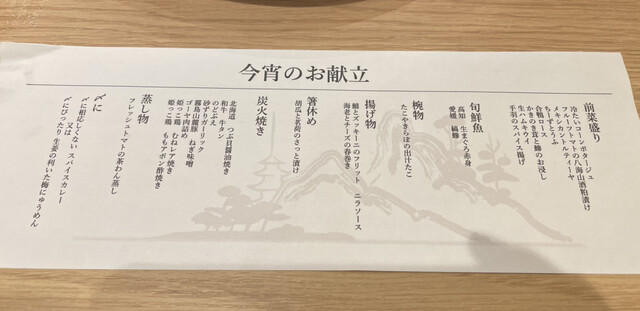 今宵のお献立
前菜盛り
冷たいコーンポタージュ
フルーツトマトの八海山酒粕漬け
メキシカントルティーヤ
ちーずとうふ
合鴨ロース
かきのき茸と鱧のお浸し
生ハムキウイ
手羽のスパイス揚げ
旬鮮魚
高知 生まぐろ赤身
愛媛 縞鯵
椀物
たこやきらぼの出汁たこ
揚げ物
鱧とズッキーニのフリット ニラソース
海老とチーズの春巻き
箸休め
胡瓜と茗荷のさっと漬け
炭火焼き
北海道 つぶ貝醤油焼き
和牛 牛タン
のどぶえ
砂ずりガーリック
霧島山麓豚 ねぎ味噌
ゴーヤ肉詰め
姫っこ鶏 むねレア焼き
姫っこ鶏 ももアポン酢焼き
蒸し物
フレッシュトマトの茶わん蒸し
〆に
〆に相応しくない スパイスカレー
又は
〆にぴったり 生姜の利いた梅にゅうめん